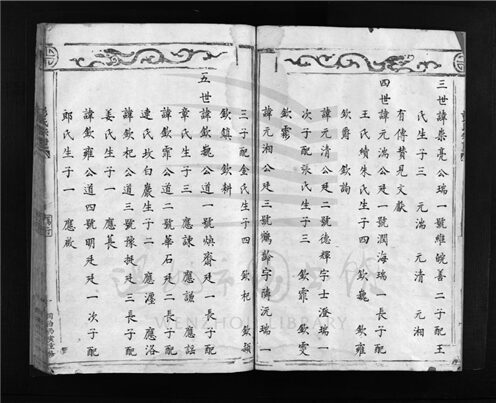 三世諱崇亮公瑞一號維皖善二子配王
氏生子三 元湍 元清 元湘
有傳贊見文獻
四世諱元湍公廷一號潤海瑞一長子配
王氏續朱氏生子四 欽巍 欽雍
欽爵 欽詢
諱元清公廷二號德輝字士澄瑞一
次子配張氏生子三 欽霏 欽雯
欽霱
諱元湘公廷三號 字 沅瑞一
三子配金氏生子四 欽杞 欽穎
欽鎮 欽耕
五世諱欽巍公道一號煥齋廷一長子配
章氏生子三 應諫 應謙 應謡
諱欽霏公道二號華石廷二長子配
連氏 白慶生子二 應 應洛
諱欽杞公道三號豫挺廷三長子配
姜氏生子一 應萇
諱欽雍公道四號明廷廷一次子配
郎氏生子一 應
WENZHOU LIBRARY